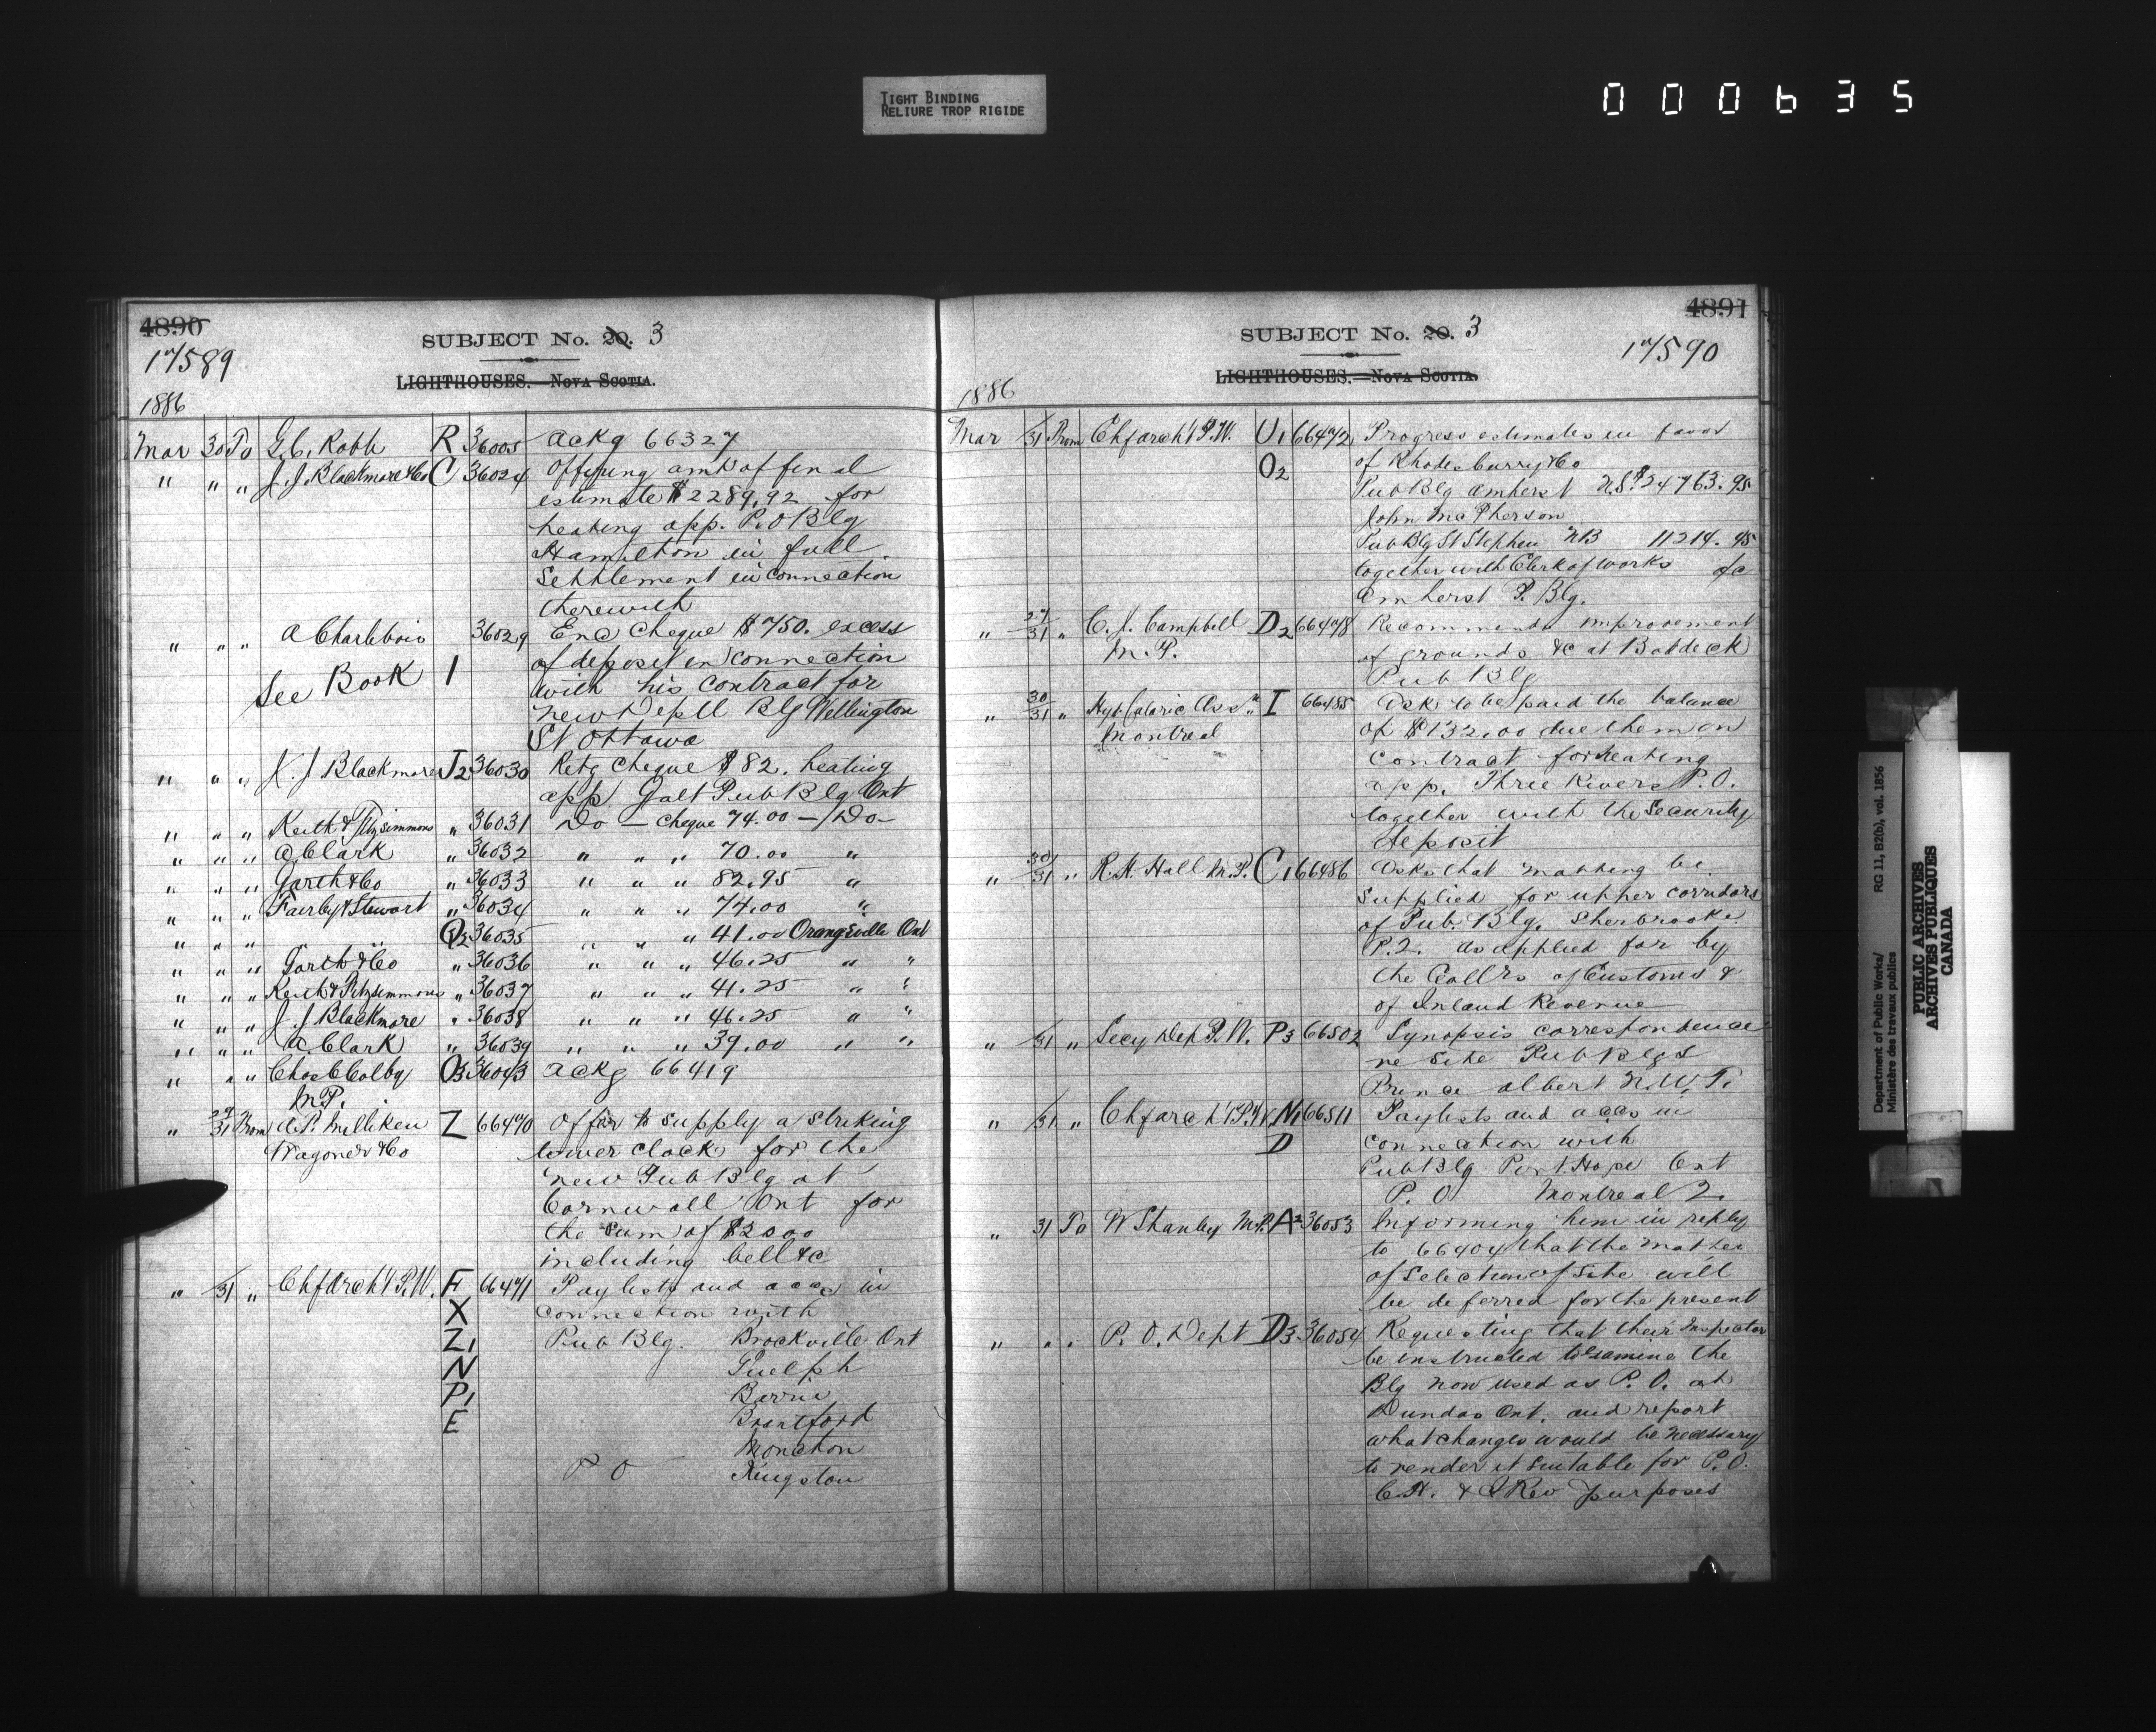 TIGHT BINDING
RELIURE TROP RIGIDE
000635
4890
17589
SUBJECT No. 20. 3
LIGHTHOUSES.—NOVA SCOTIA.
1886
Mar 30 To G.C. Robb R 36005 ackg 66327
" " " J.J. Blackmore & Co C 36024 Offering amt of final
estimate $2289.92 for
heating app. P.O Blg
Hamilton in full
Settlement in connection
therewith
" " " A Charlebois 36029 Enc cheque $750. excess
See Book 1 of deposit in connection
with his contract for
new Deptl Blg Wellington
St Ottawa
" " " J. J Blackmore J2 36030 Retg cheque $82. heating
app Galt Pub Blg Ont
" " " Keith & Fitzsimmons " 36031 Do — cheque 74.00 — Do
" " " A Clark " 36032 " " " 70.00 "
" " " Garth & Co " 36033 " " " 82.95 "
" " " Fairby & Stewart " 36034 " " " 74.00 "
" " " " " Q2 36035 " " " 41.00 Orangeville Ont
" " " Garth & Co " 36036 " " " 46.25 " "
" " " Keith & Fitzsimmons " 36037 " " " 41.25 " "
" " " J. J Blackmore " 36038 " " " 46.25 " "
" " " A. Clark " 36039 " " " 39.00 " "
" " " Chas C Colby O3 36043 ackg 66419
M.P.
" 27/31 From A.P. Milliken Z 66470 Offer to supply a striking
Wagoner & Co tower clock for the
new Pub Blg at
Cornwall Ont for
the sum of $2000
including bell &c
" /31 " Chf Archt P.W. F 66471 Paylists and accs in
X connection with
Z1 Pub Blg. Brockville Ont
N Guelph
P1 Barrie
E Brantford
Moncton
P O Kingston
4891
17590
SUBJECT No. 20. 3
LIGHTHOUSES.—NOVA SCOTIA.
1886
Mar /31 From Chf Archt P.W. U1 66472 Progress estimates in favor
O2 of Rhodes Curry & Co
Pub Blg Amherst N.S. $24763.95
John McPherson
Pub Blg St Stephen NB 11214.45
together with Clerk of Works of c
Amherst P. Blg.
" 27/31 " C. J. Campbell D2 66478 Recommends improvement
M.P. of grounds &c at Baddeck
Pub Blg
" 30/31 " Hyg Caloric Assn I 66485 Ask to be paid the balance
Montreal of $132.00 due them on
contract for heating
app. Three Rivers P.O.
together with the Security
deposit
" 30/31 " R. N. Hall M.P. C1 66486 Asks that matting be
supplied for upper corridors
of Pub. Blg. Sherbrooke
P.2. as applied for by
the Collrs of Customs &
of Inland Revenue
" /31 " Secy Dep P.W. P3 66502 Synopsis correspondence
re Site Pub Blgs
Prince Albert N.W.T.
" /31 " Chf Archt P.W. N1 66511 Paylists and accs in
D connection with
Pub Blg Port Hope Ont
P. O Montreal 2.
" 31 To W Shanly M.P. A2 36053 Informing him in reply
to 66404 that the matter
of selection of Site will
be deferred for the present
" " " P. O. Dept D3 36054 Requesting that their Inspector
be instructed to examine the
Blg now used as P. O. at
Dundas Ont. and report
what changes would be necessary
to render it suitable for P.O.
C.H. & I Rev purposes
Department of Public Works/ RG 11, B2(b), vol. 1856
Ministère des travaux publics
PUBLIC ARCHIVES
ARCHIVES PUBLIQUES
CANADA